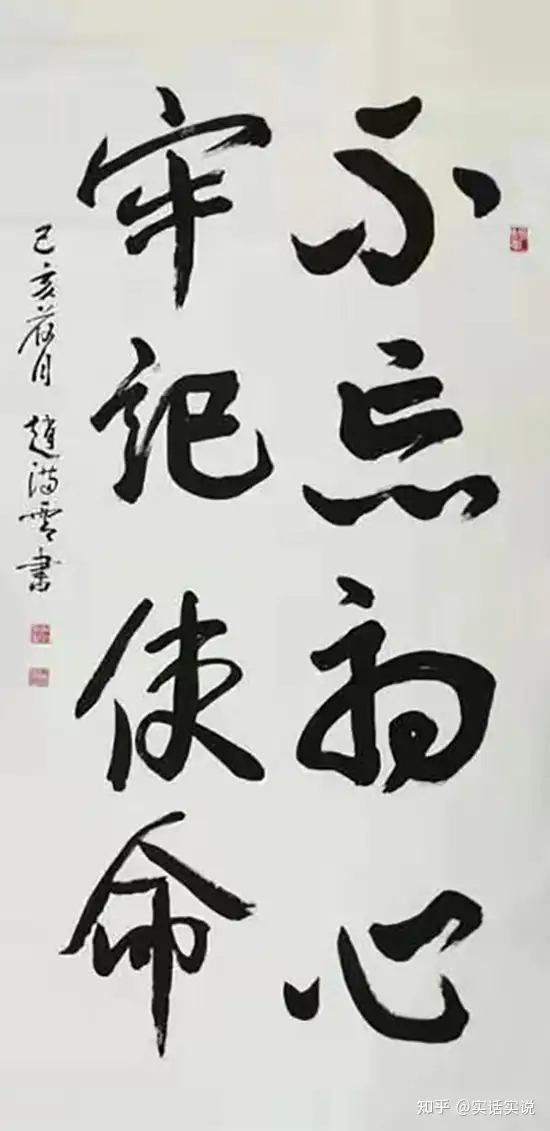 不忘初心
牢记使命
己亥荷月 趙满雲书
知乎 @实话实说